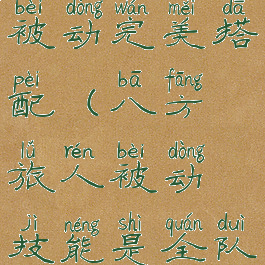 bèi dòng wán měi dā
被动完美搭
pèi bā fāng
配（八方
lǚ rén bèi dòng
旅人被动
jì néng shì quán duì
技能是全队